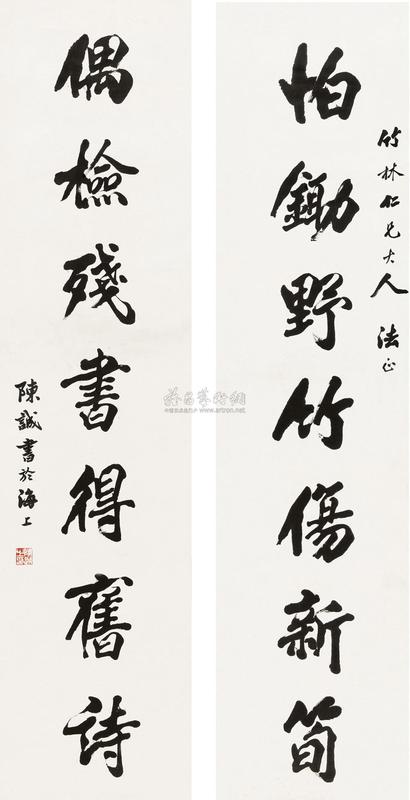 竹林仁兄大人 法正
怕鋤野竹傷新筍
偶檢殘書得舊詩
陳誠書於海上
www.artron.net